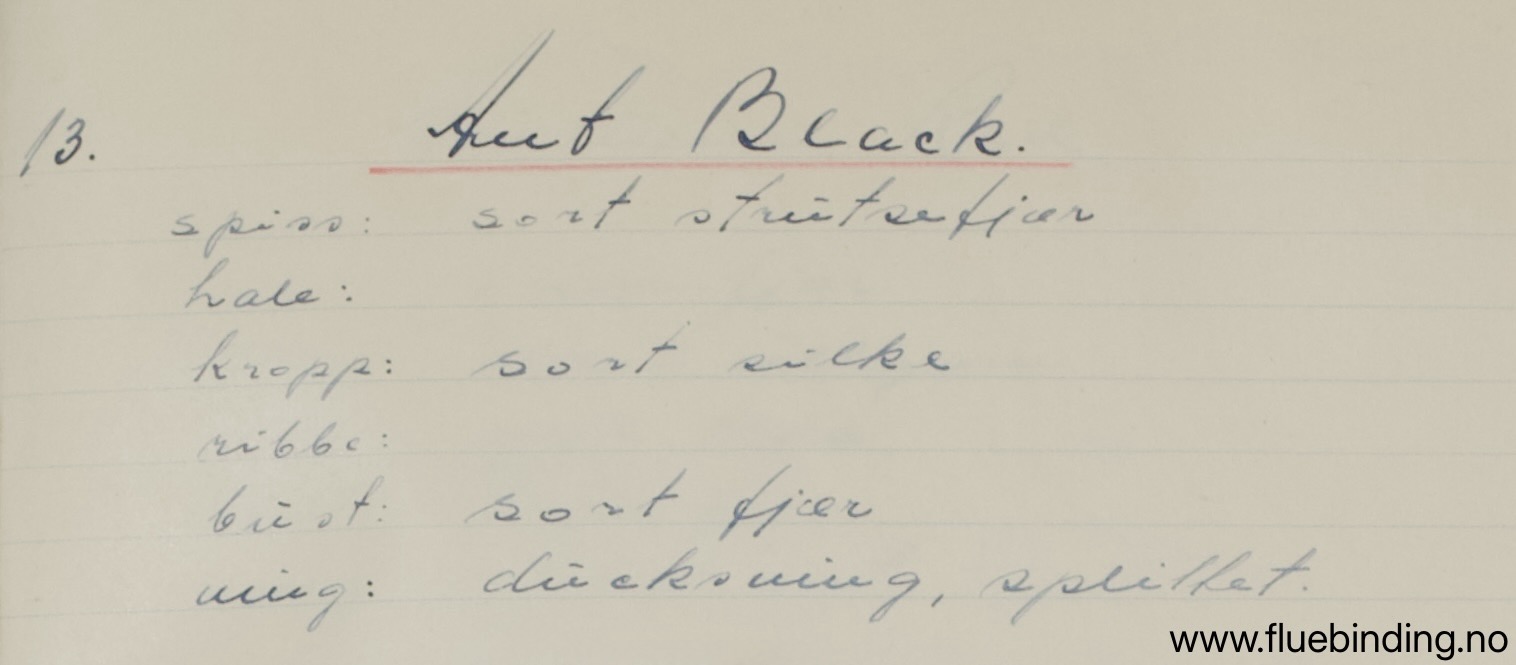 13. Ant Black.
spiss: sort strutsefjær
hale:
kropp: sort silke
ribbe:
bust: sort fjær
wing: duckswing, splittet.
www.fluebinding.no